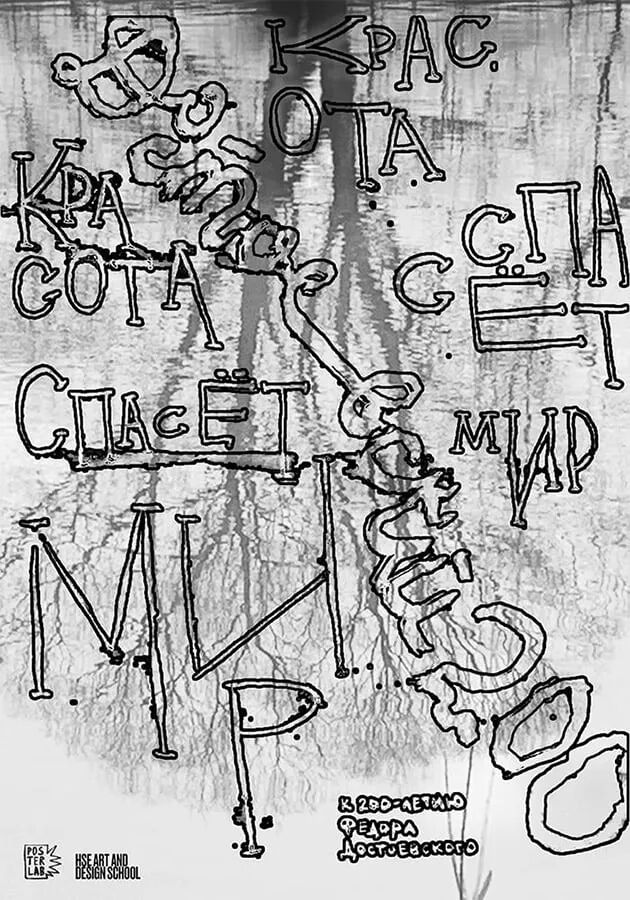 КРАС
ОТА
СПА
СЁТ
МИР
КРА
СОТА
СПАСЁТ
МИ
Р
К 200-ЛЕТИЮ
ФЕДОРА
ДОСТОЕВСКОГО
POS
TER
LAB
HSE ART AND
DESIGN SCHOOL